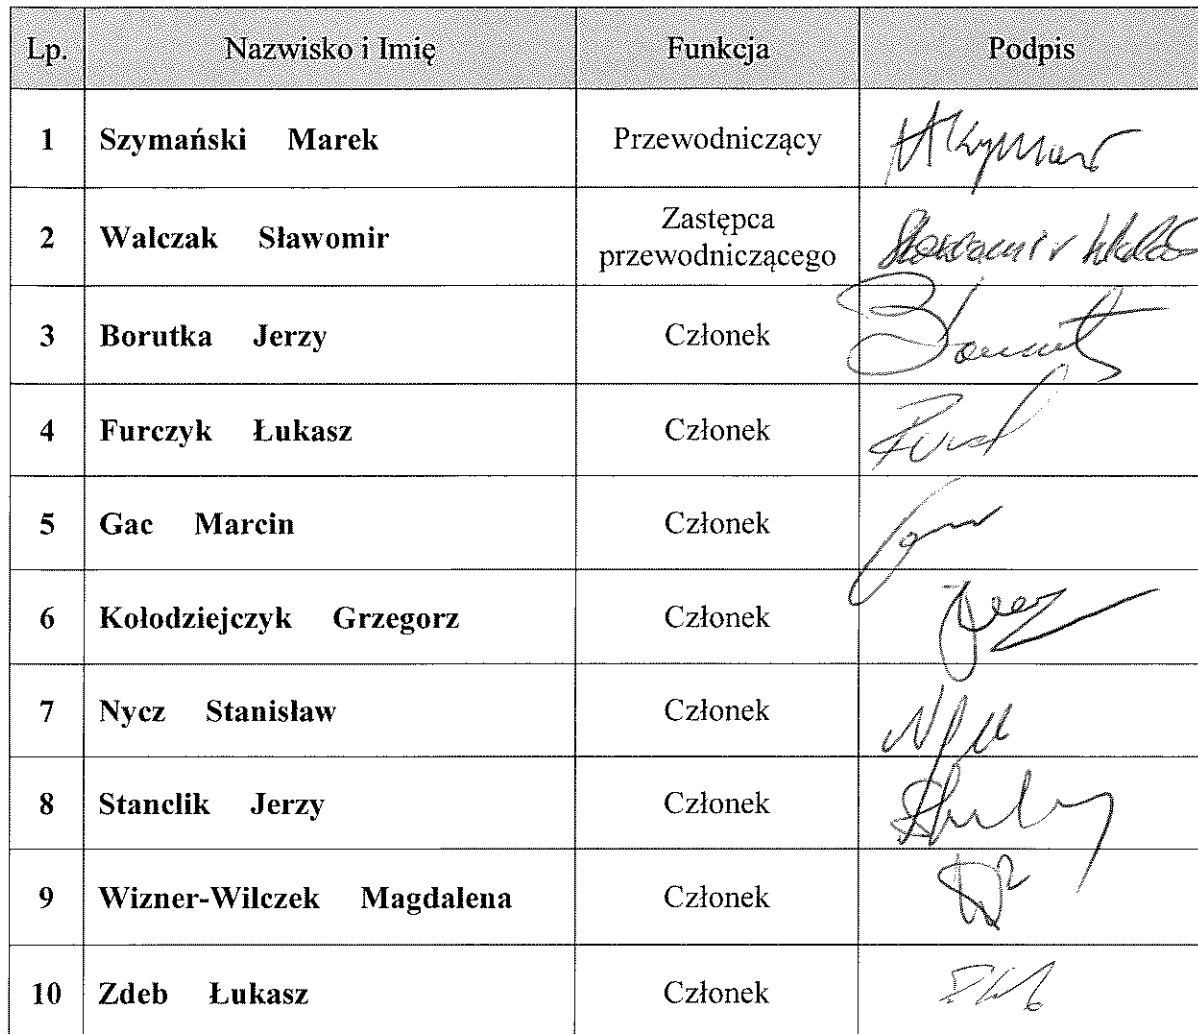 Lp. Nazwisko i Imię Funkcja Podpis
1 Szymański Marek Przewodniczący
2 Walczak Sławomir Zastępca
przewodniczącego Sławomir
3 Borutka Jerzy Członek
4 Furczyk Łukasz Członek
5 Gac Marcin Członek
6 Kołodziejczyk Grzegorz Członek
7 Nycz Stanisław Członek
8 Stanclik Jerzy Członek
9 Wizner-Wilczek Magdalena Członek
10 Zdeb Łukasz Członek